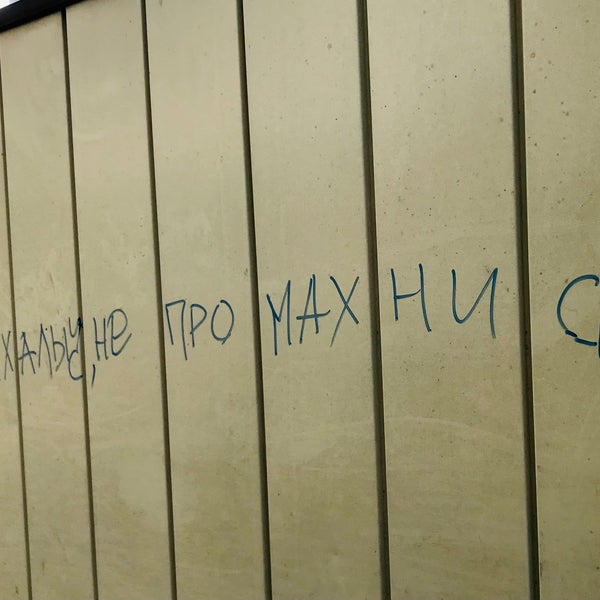 ХАЛЫЧ, НЕ ПРО МАХ НИ С